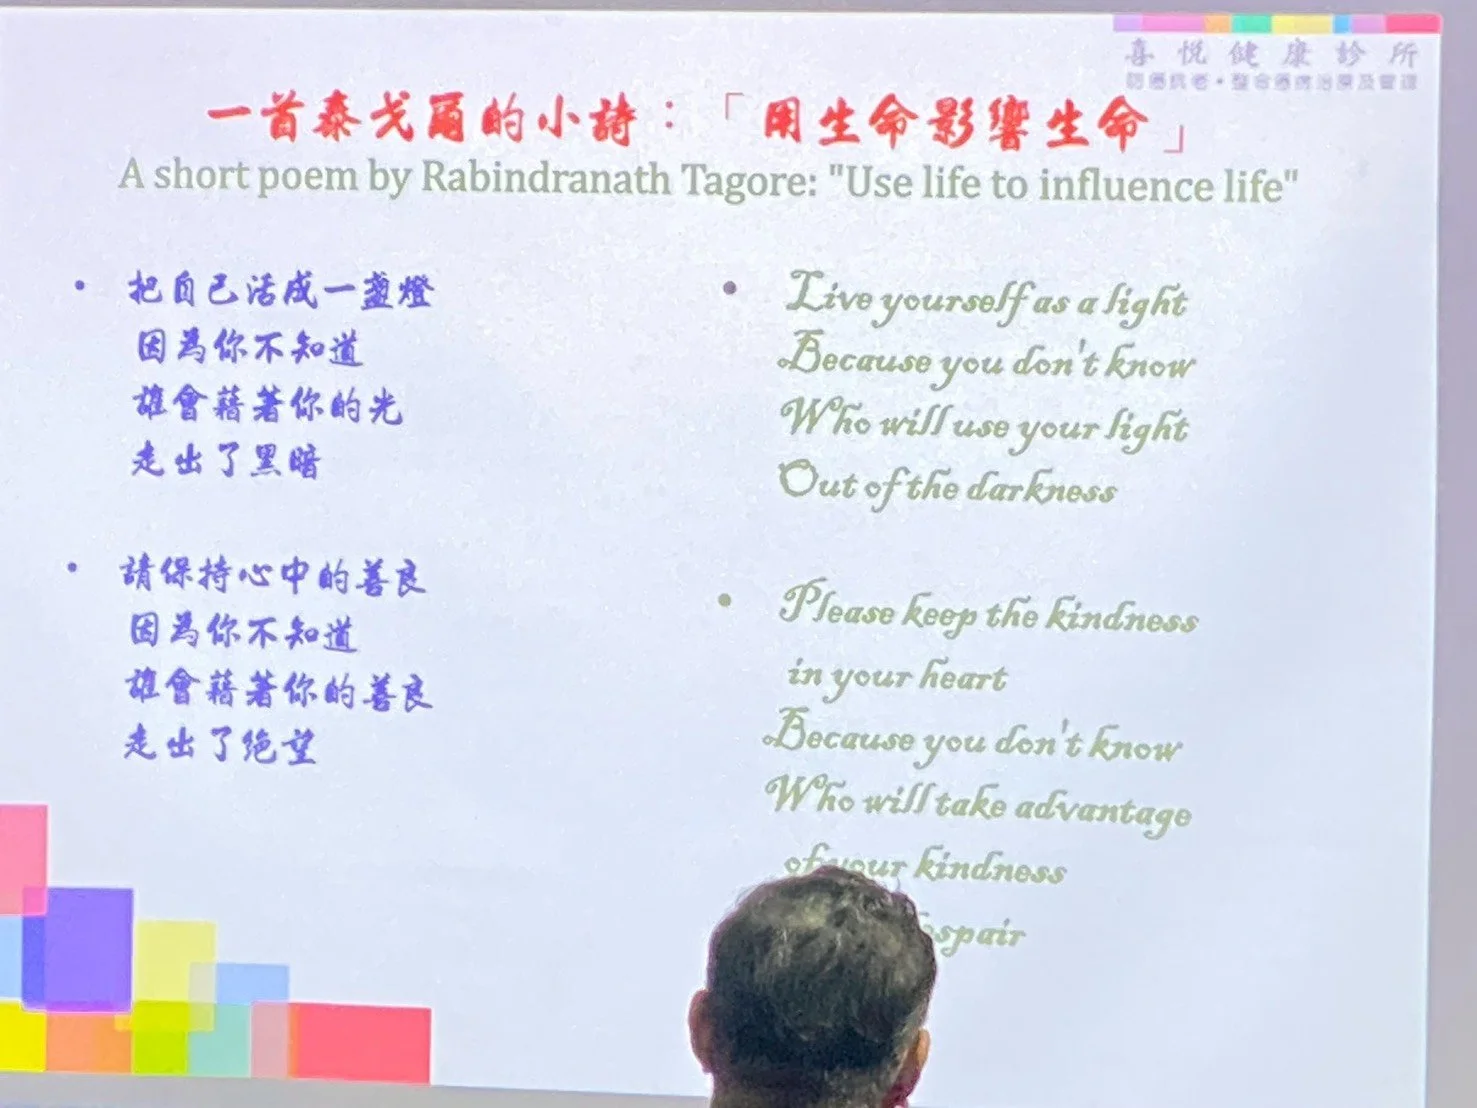 喜悅健康診所
防癌抗老•整合癌病治療及管理
一首泰戈爾的小詩：「用生命影響生命」
A short poem by Rabindranath Tagore: "Use life to influence life"
• 把自己活成一盞燈
因為你不知道
誰會藉著你的光
走出了黑暗
• 請保持心中的善良
因為你不知道
誰會藉著你的善良
走出了絕望
• Live yourself as a light
Because you don't know
Who will use your light
Out of the darkness
• Please keep the kindness
in your heart
Because you don't know
Who will take advantage
of your kindness